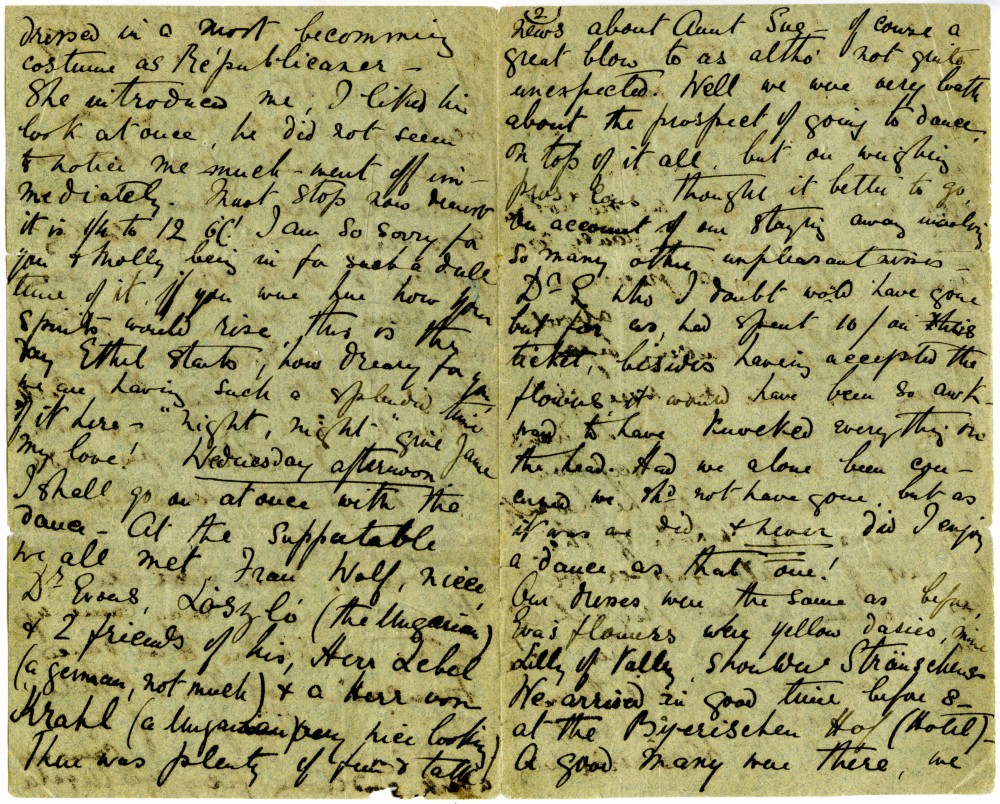 dressed in a most becomming
costume as Républicaner –
She introduced me, I liked his
look at once, he did not seem
to notice me much – went off im-
mediately. Must stop now dearest
it is 1/4 to 12 oC! I am so sorry for
you & Molly being in for such a dull
time of it, if you were here how your
spirits would rise this is the
day Ethel starts, how dreary for you,
we are having such a splendid time
of it here – "night, night" give Janie
my love! Wednesday afternoon
I shall go on at once with the
dance – At the Suppertable
we all met, Frau Wolf, niece,
Dr Evans, László (the Ungarian)
& 2 friends of his, Herr Lebel
(a german, not much) & a Herr von
Krahl (a Ungarian) very nice looking
There was plenty of fun & talk
(2)
news about Aunt Sue – of course a
great blow to us altho' not quite
unexpected. Well we were very loath
about the prospect of going to dance
on top of it all, but on weighing
pros & cons thought it better to go,
on account of our staying away involving
so many other unpleasantnesses –
Dr E who I doubt would have gone
but for us, had spent 10/ on this
ticket, besides having accepted the
flowers it would have been so awk-
ward to have knocked everything on
the head. Had we alone been con-
cerned we shd not have gone, but as
it was we did, & never did I enjoy
a dance as that one!
Our dresses were the same as before,
Eva's flowers were yellow dasies, mine
Lilly of Vally, shoulder Sträuschens
We arrived in good time before 8 –
at the Byerischen Hof (Hotel) –
A good many were there, we